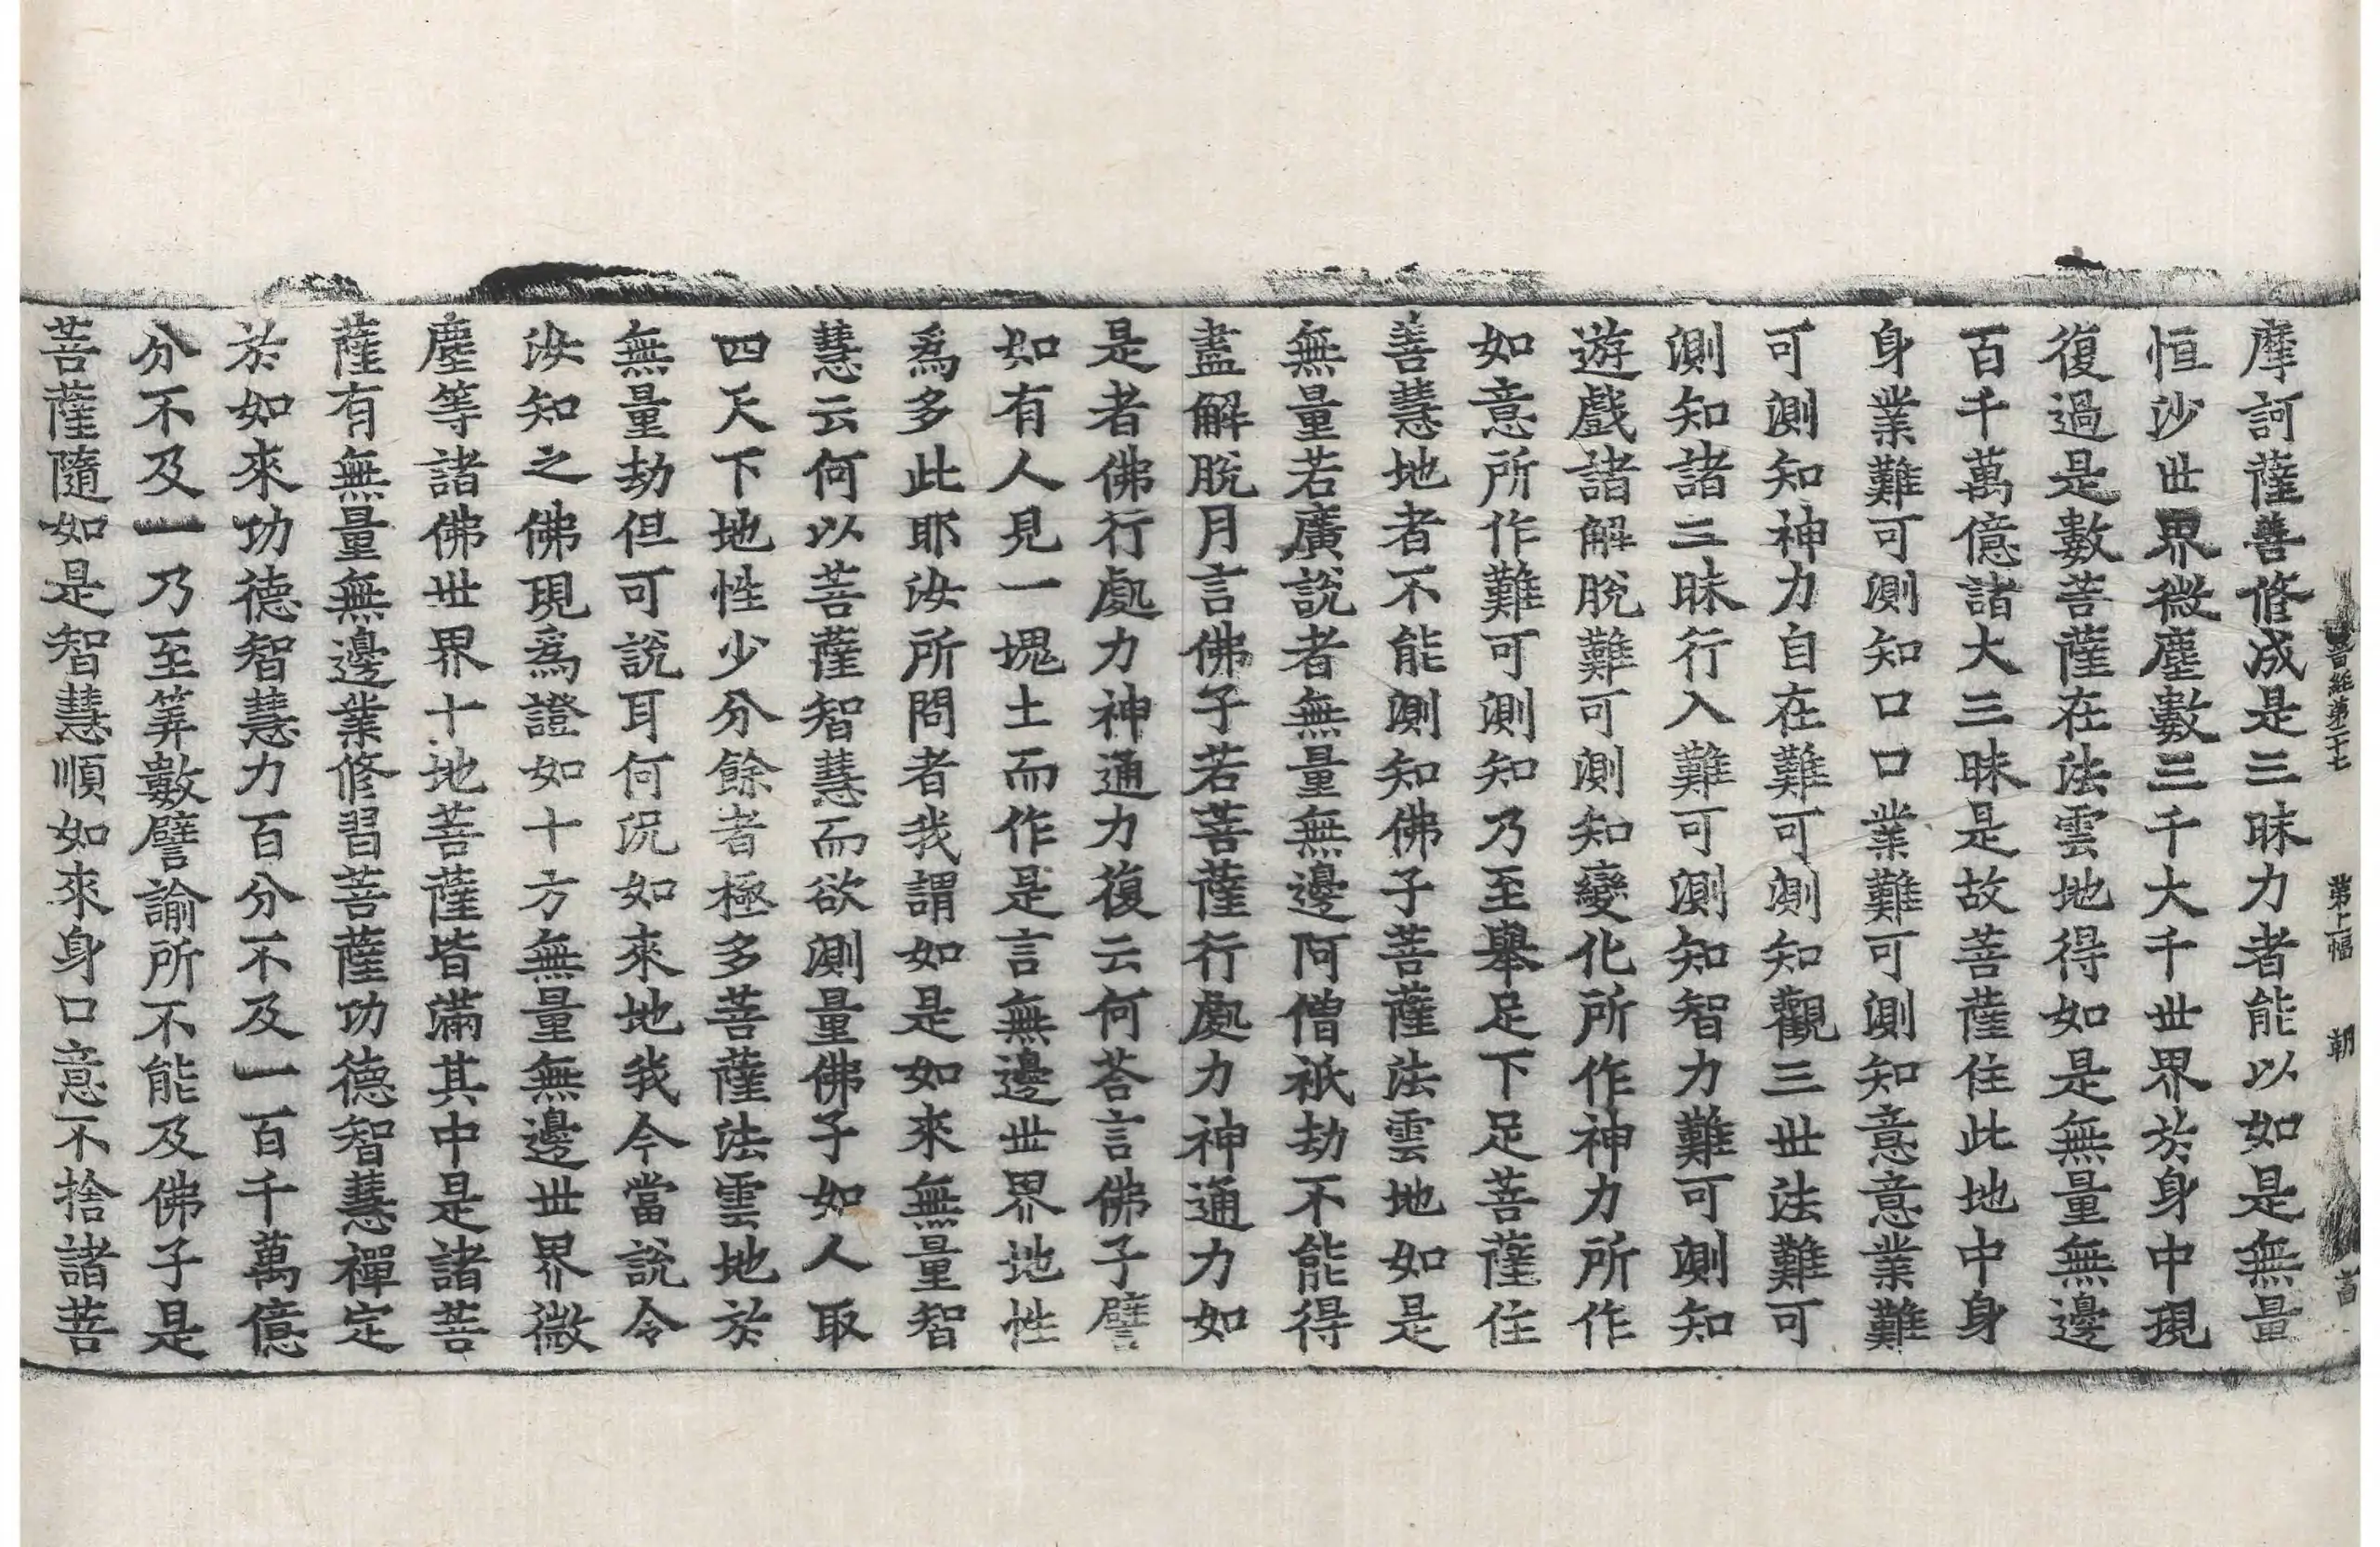 晋經第二十七 第十二幅 朝
摩訶薩善修成是三昧力者能以如是無量
恒沙世界微塵數三千大千世界於身中現
復過是數菩薩在法雲地得如是無量無邊
百千萬億諸大三昧是故菩薩住此地中身
身業難可測知口口業難可測知意意業難
可測知神力自在難可測知觀三世法難可
測知諸三昧行入難可測知智力難可測知
遊戲諸解脫難可測知變化所作神力所作
如意所作難可測知乃至舉足下足菩薩住
善慧地者不能測知佛子菩薩法雲地如是
無量若廣說者無量無邊阿僧祇劫不能得
盡解脫月言佛子若菩薩行處力神通力如
是者佛行處力神通力復云何荅言佛子譬
如有人見一塊土而作是言無邊世界地性
爲多此耶汝所問者我謂如是如來無量智
慧云何以菩薩智慧而欲測量佛子如人取
四天下地性少分餘者極多菩薩法雲地於
無量劫但可說耳何況如來地我今當說令
汝知之佛現爲證如十方無量無邊世界微
塵等諸佛世界十地菩薩皆滿其中是諸菩
薩有無量無邊業修習菩薩功德智慧禪定
於如來功德智慧力百分不及一百千萬億
分不及一乃至筭數譬諭所不能及佛子是
菩薩隨如是智慧順如來身口意不捨諸菩